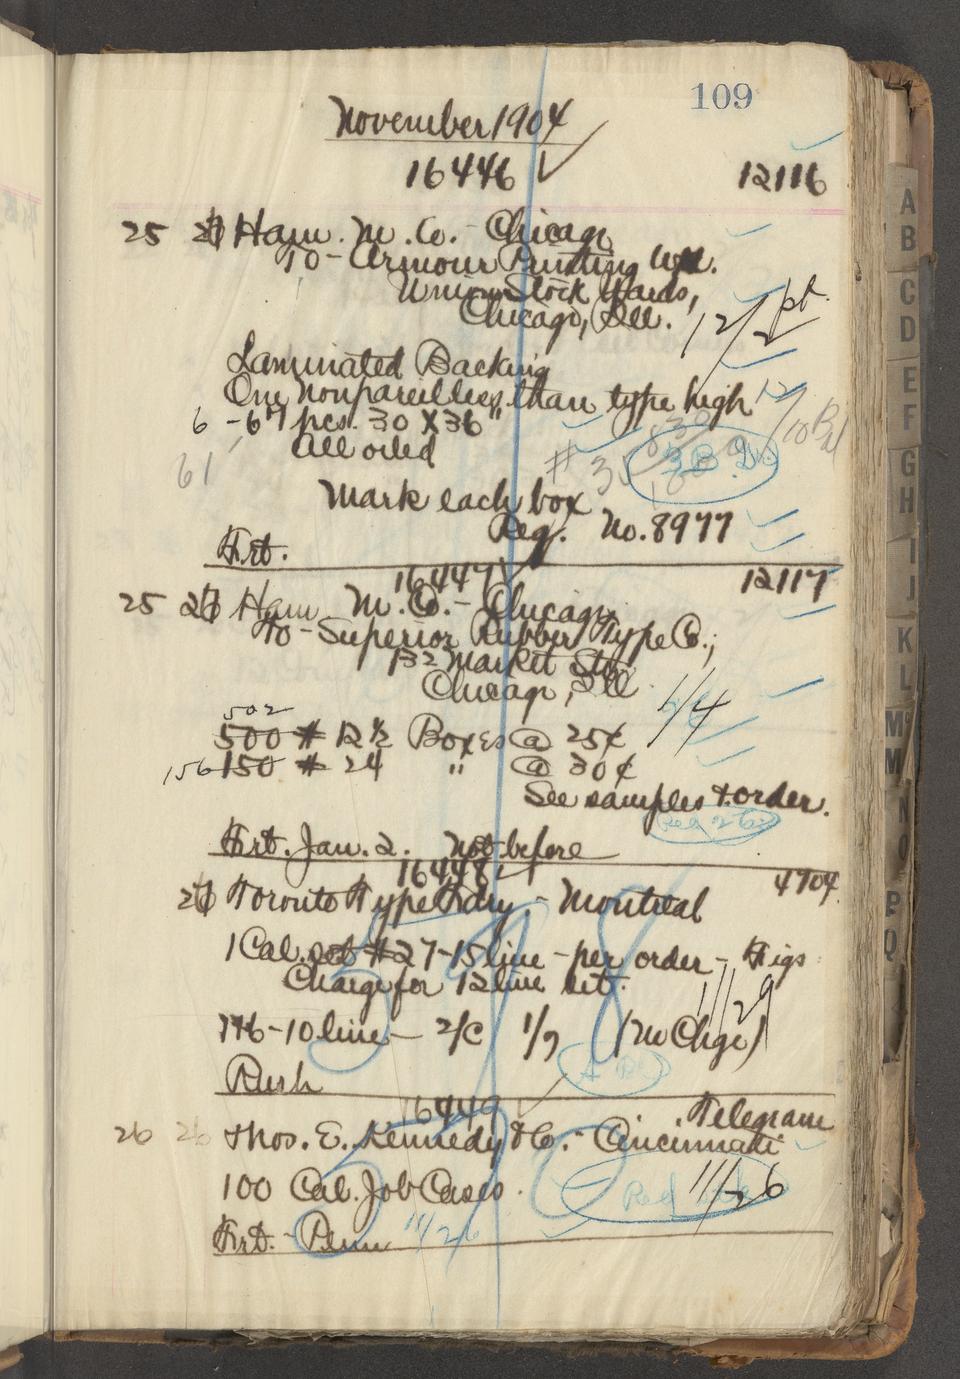 109
November 1904
16446 12116
25 Ham. M. Co. - Chicago
To - Armour Printing Wks.
Union Stock Yards,
Chicago, Ill. 12/2 pt.
Laminated Backing
One nonpareil less than type high
6 - 67 pcs. 30 X 36"
All oiled
61
Mark each box
Reg. No. 8977
Frt.
16447 12117
25 Ham M. Co. - Chicago
To - Superior Rubber Type Co.;
132 Market St.
Chicago, Ill. 1/4
502
500 # 12 1/2 Boxes @ 25¢
156 150 # 24 " @ 30¢
See samples & order.
Frt. Jan. 2. Not before
16448 4704
Toronto Type Fdry. - Montreal
1 Cal. set #27-15 line - per order - Figs
Charge for 12 line set. 11/29
146-10 line - 2/C 1/9 (No Chge)
Rush
16449 Telegram
26 26 Thos. E. Kennedy & Co. - Cincinnati
100 Cal. Job Cases. 11/26
Frt. - Penn 11/26
A
B
C
D
E
F
G
H
I
J
K
L
M
N
O
P
Q